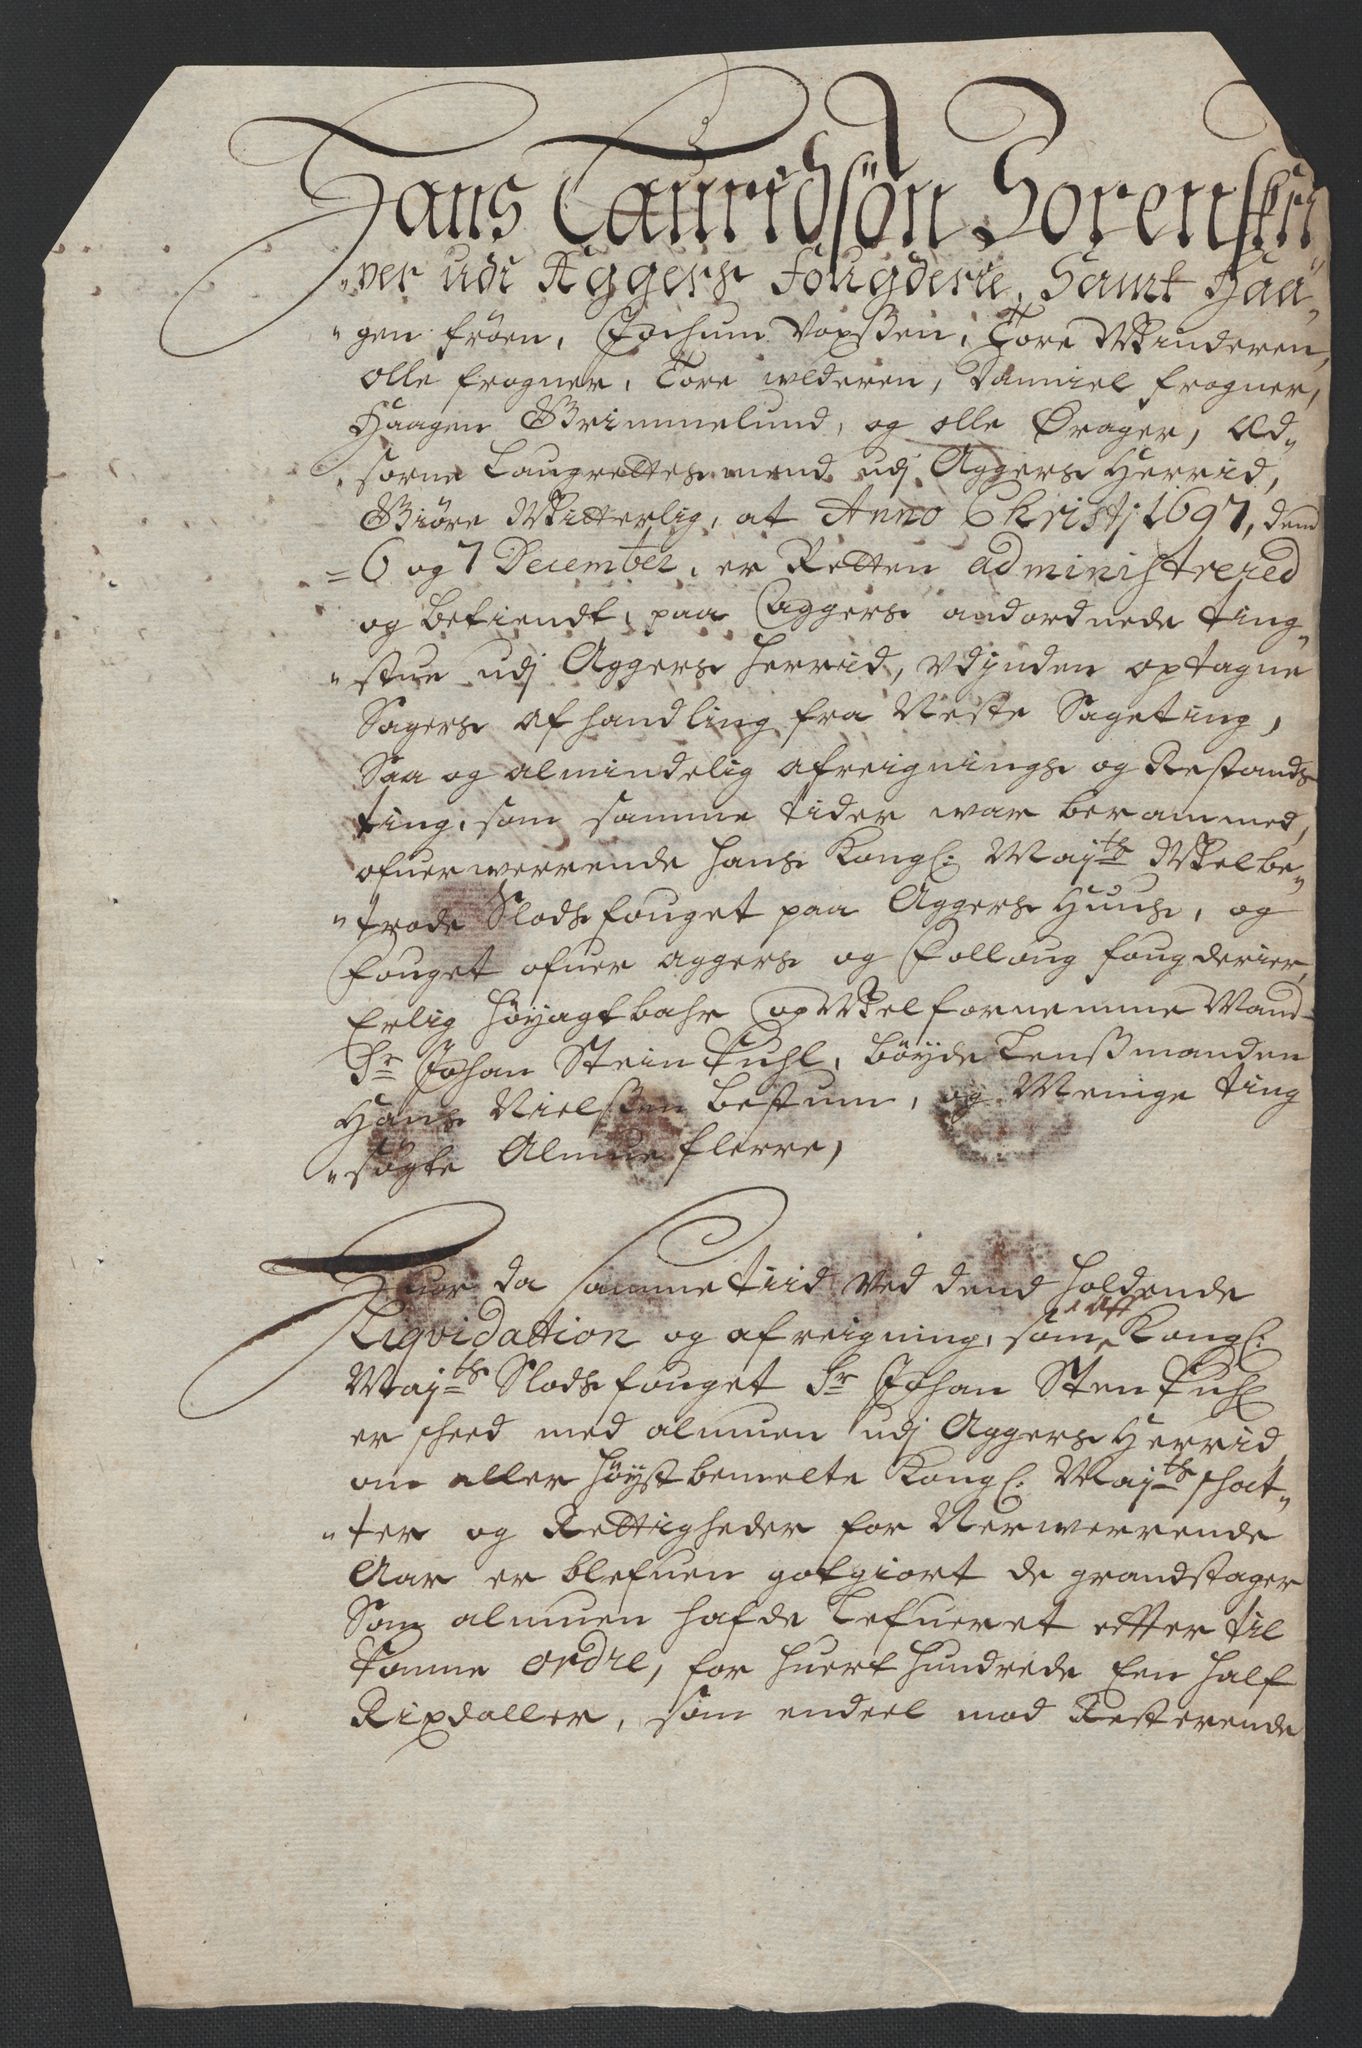 Hans Lauridsön Sorenskri
„ver udi Aggers fougderie, Samt Haa„
„gen fröen, Jochum Vopßen, Tore Minderen,
olle frogner, Tore ulderen, Damiel frogner,
Haagen Grimmelund, og olle Ørager, Æd„
„sorne Laugrettes mend udj Aggers Herrid,
Giöre Witterlig, at Anno Christj 1697, dend
=6 og 7 December, er Retten administrered
og betiendt, paa Aggers andordnede ting„
„stue udj Aggers Herrid, Vdjnden optagne
Sagers afhandling fra Neste Sageting,
Saa og almindelig afreignings og Restands
ting, som samme tider war berammed,
ofuerwerrende Hans Kongl: Maj:ts Welbe„
„trode Slodsfouget paa Aggers Huus, og
fouget ofuer Aggers og Folloug fougderier,
Erlig Höyagtbahr og Welfornemme Mand
Sr Johan Stein Kuhl, böyde Lenßmanden
Hans Nielßen Bestum, og Menige ting
„sögte Almue flerre,
Huor da samme tiid Ved dend holdende
Liqvidation og afreigning, som aff Kongl:
Maj:ts Slodsfouget Sr Johan Sten Kuhl
er skeed med almuen udj Aggers Herrid
om allerhöystbemelte Kongl: Maj:ts skat„
„ter og Rettigheder for Nerwerrende
Aar er blefuen gotgiort de grandstager
Som almuen hafde Lefueret effter til
komne ordre, for huert hundrede Een half
Rixdaller, som endeel mod Resterende